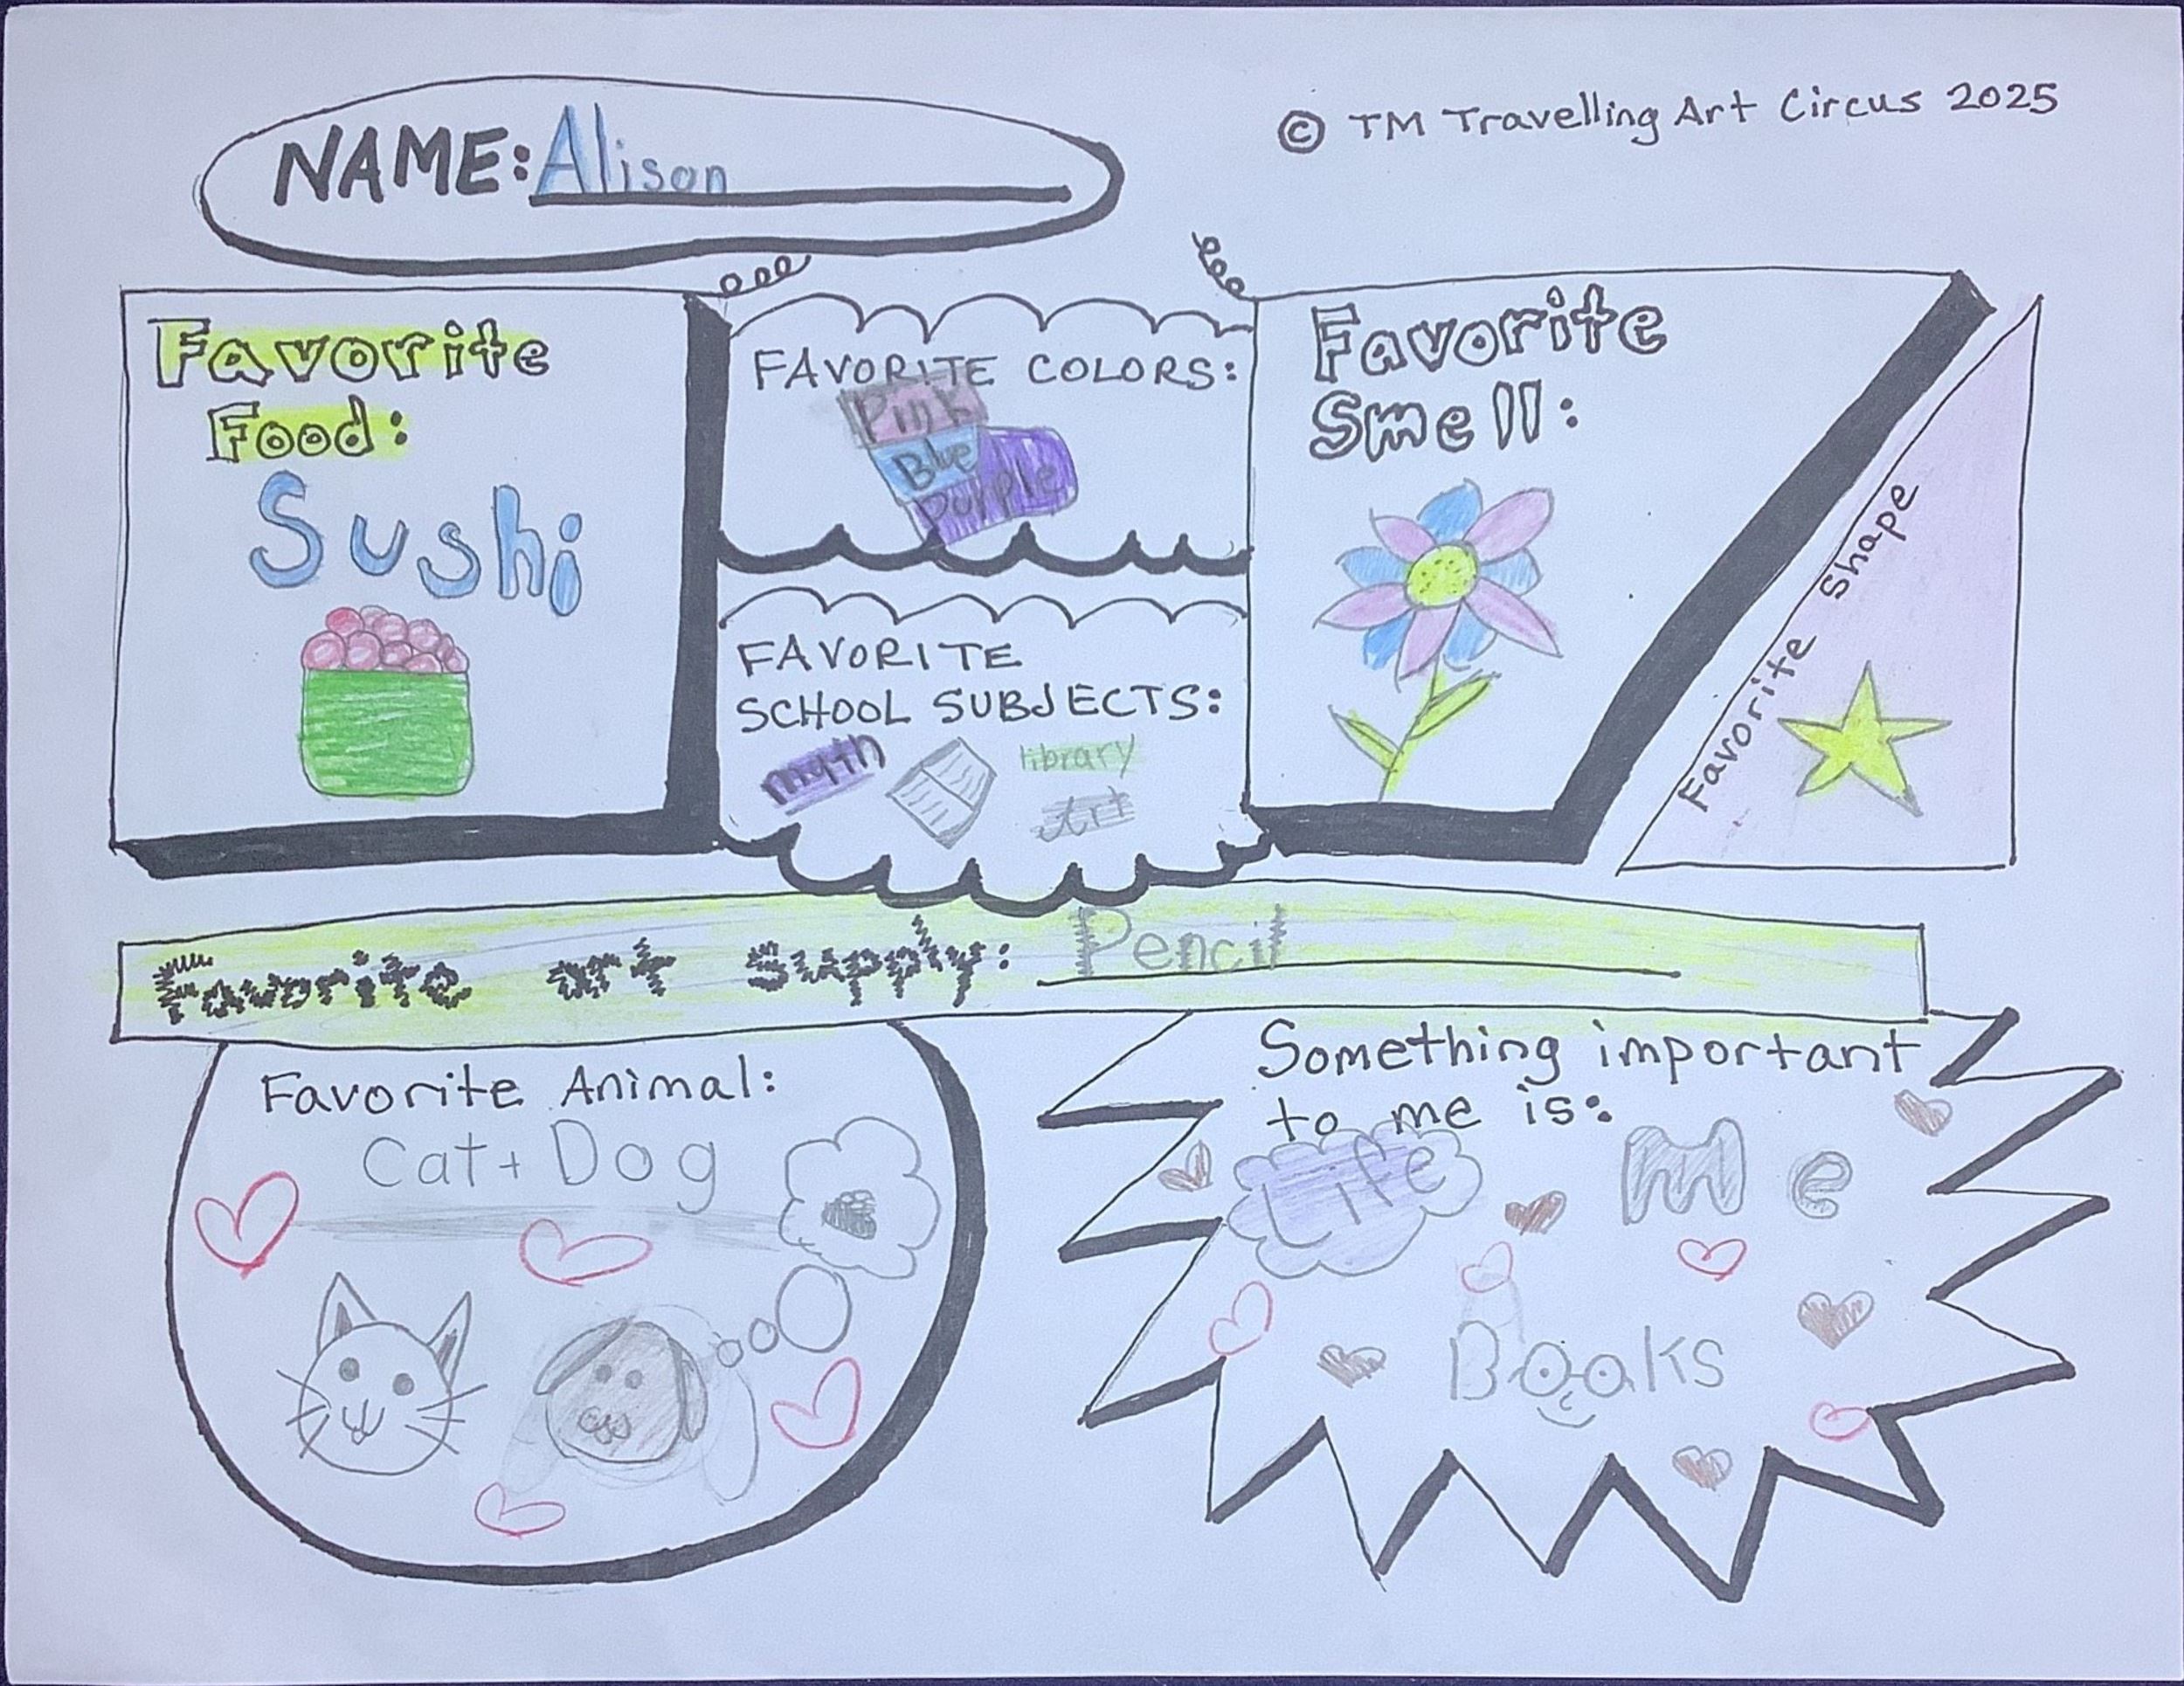 © TM Travelling Art Circus 2025
NAME: Alison
Favorite
Food:
Sushi
FAVORITE COLORS:
Pink
Blue
Purple
FAVORITE
SCHOOL SUBJECTS:
myth
library
Art
Favorite
Smell:
Favorite Shape
Favorite art supply: Pencil
Favorite Animal:
Cat + Dog
Something important
to me is:
Life
Me
Books